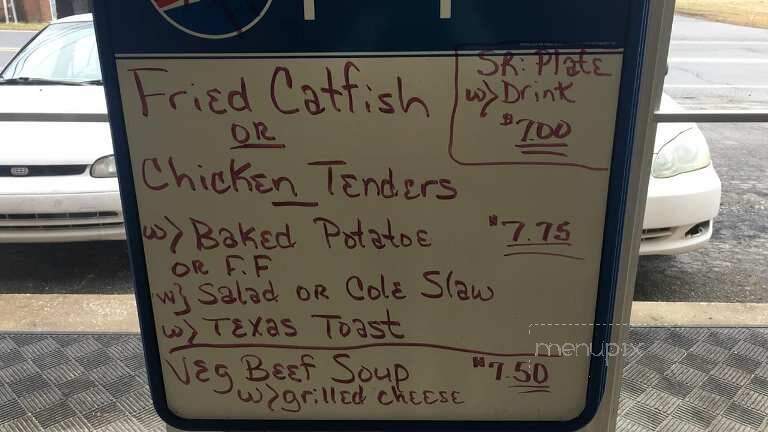 Fried Catfish
OR
Chicken Tenders
w/ Baked Potatoe $7.75
OR F.F
w/ Salad OR Cole Slaw
w/ Texas Toast
Veg Beef Soup $7.50
w/ grilled cheese
SR. Plate
w/ Drink
$7.00
menupix